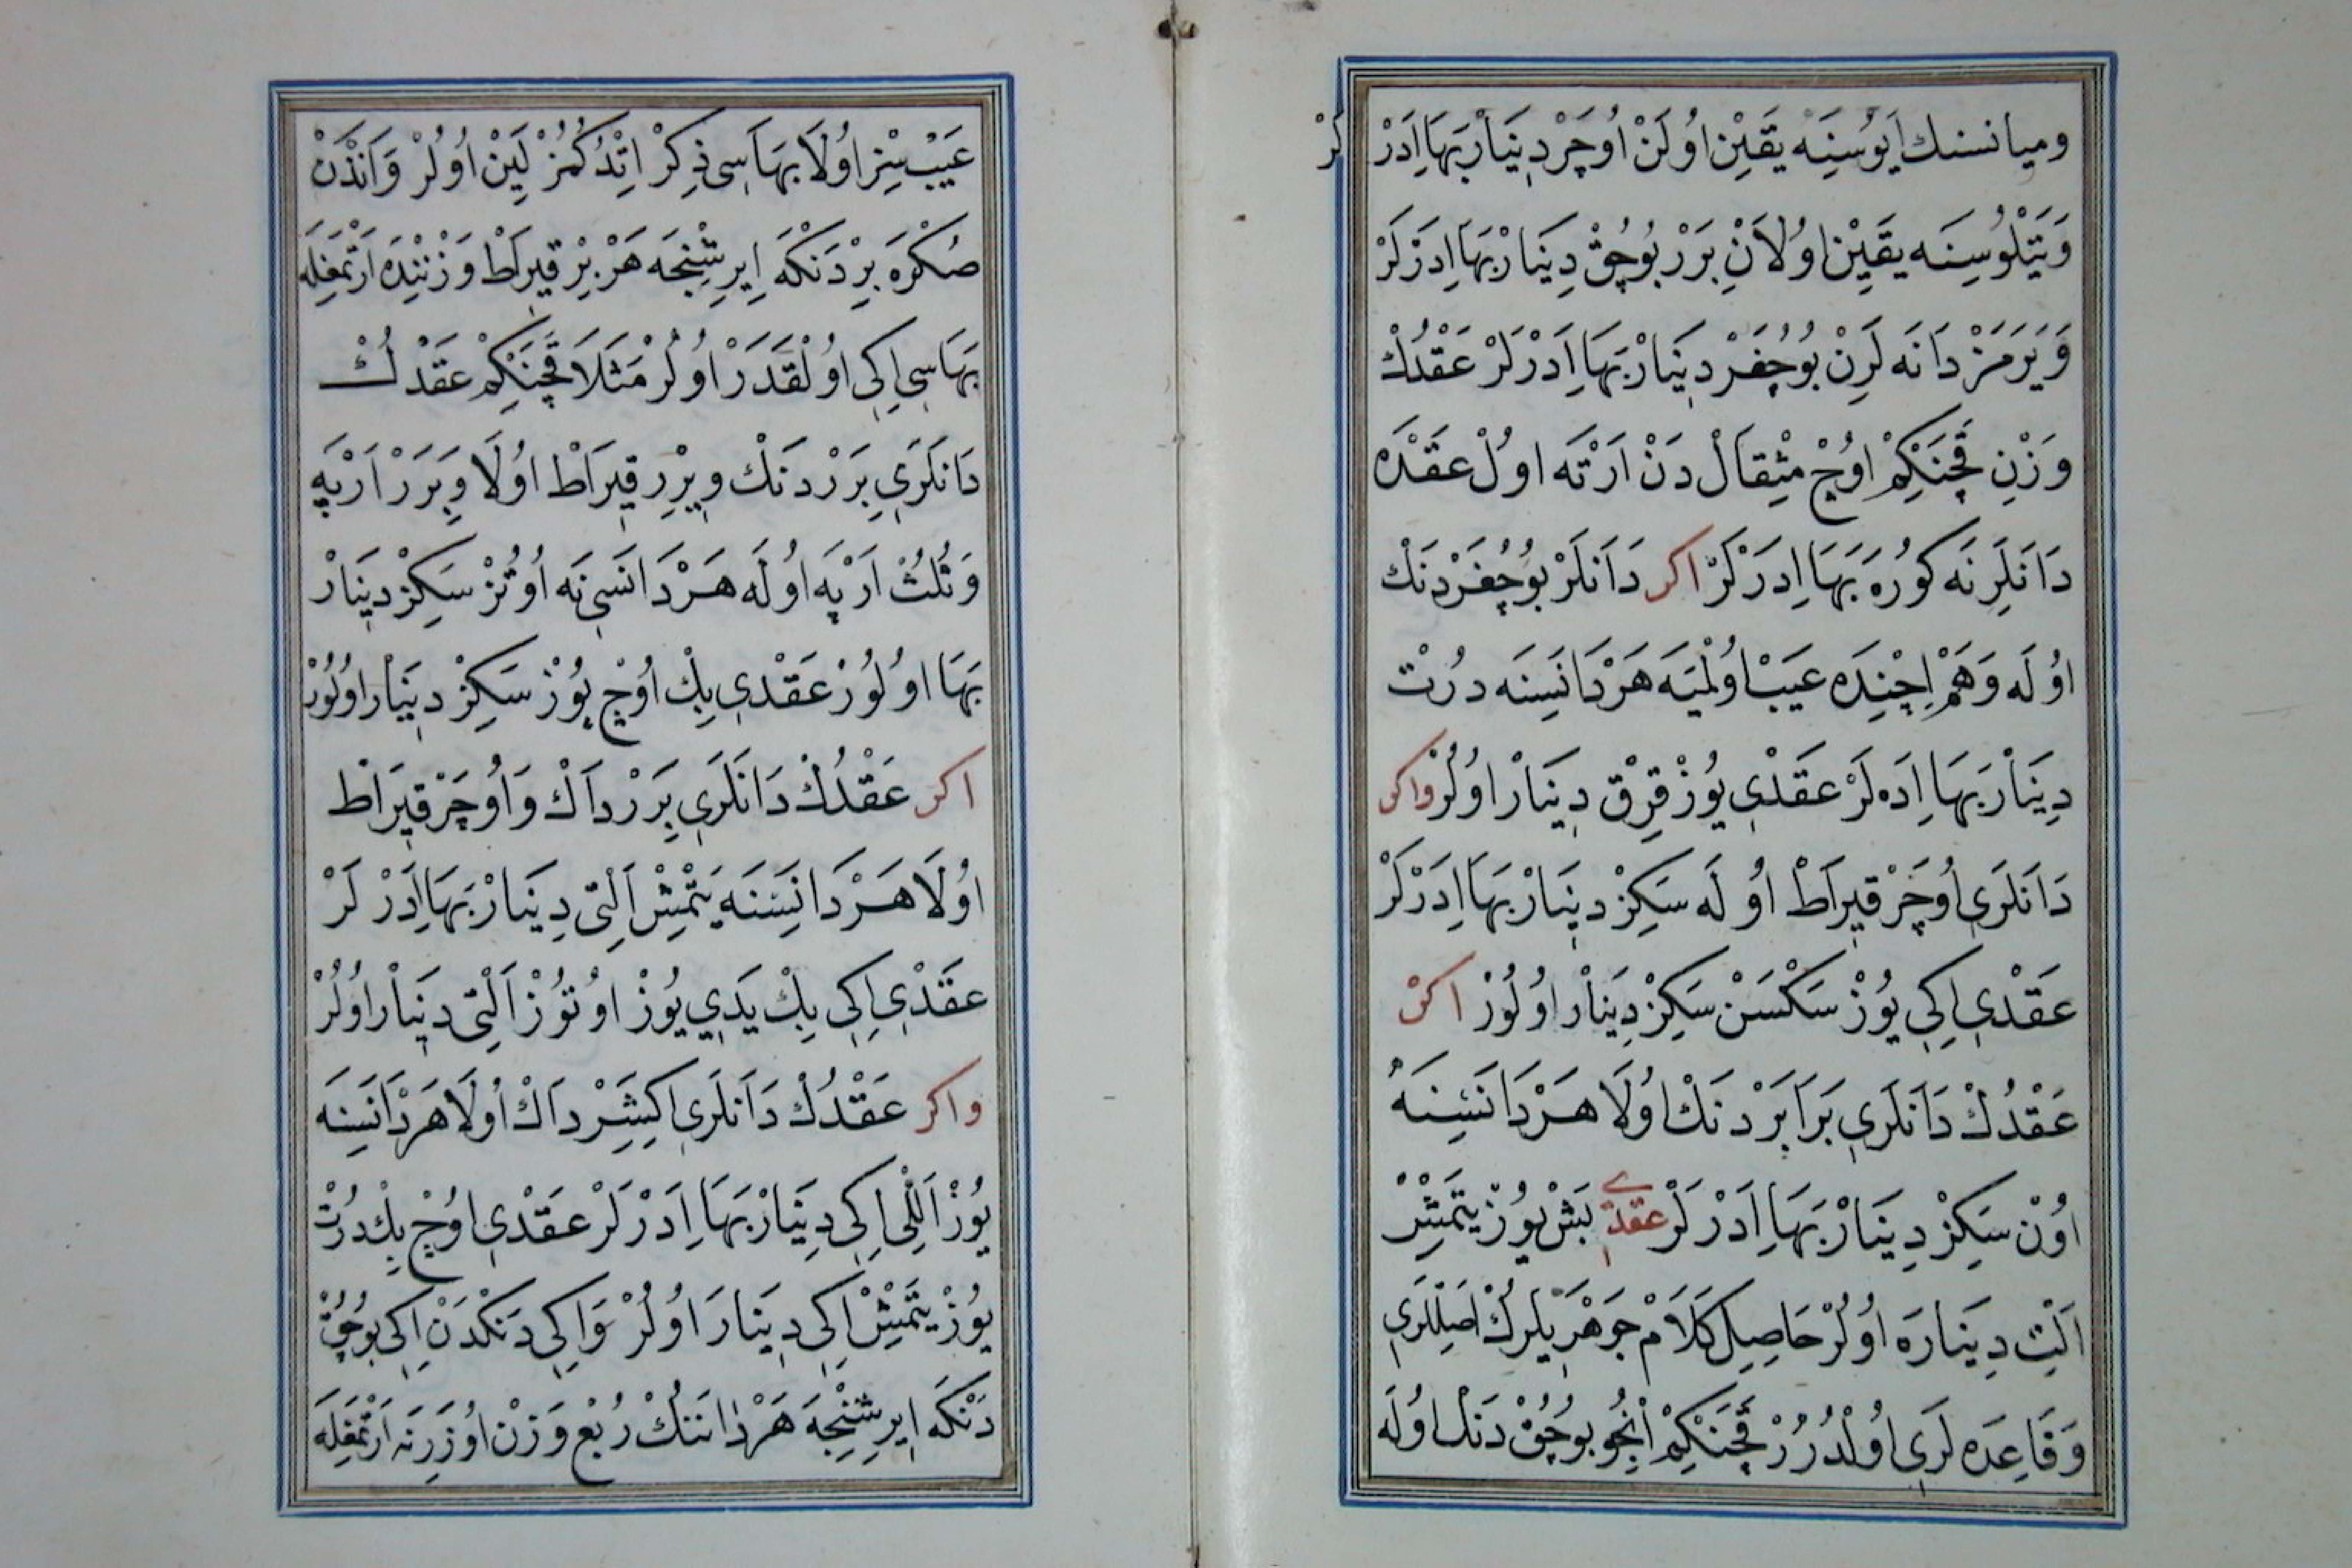 وميانسنك اَيُوسِنَه يَقِينْ اُولَنْ اُوچَرْ دِينَارْ بَهَا اِدَرْ لَرْ
وَيَتْلُوسِنَه يَقِينْ اُولَانْ بِرَرْ بُوچُقْ دِينَارْ بَهَا اِدَرْلَرْ
وَيَرَمَزْ دَانَه لَرِنْ بُوچُغَرْ دِينَارْ بَهَا اِدَرْلَرْ عَقْدُكْ
وَزْنِ قَچَنْكِمْ اوُچْ مِثْقَالْ دَنْ اَرْتَه اوُلْ عَقْدَه
دَانَلَرِنَه كُورَه بَهَا اِدَرْلَرْ اكر دَانَلَرْ بُوچُغَرْ دَنْك
اوُلَه وَهَمْ اِچِنْدَه عَيَبْ اوُلْمَيَه هَرْ دَانَسِنَه دُرْتْ
دِينَارْ بَهَا اِدَه لَرْ عَقْدِي يُوزْ قِرْقْ دِينَارْ اوُلُرْ واكر
دَانَلَرِي اُوچَرْ قِيرَاطْ اوُلَه سَكِزْ دِينَارْ بَهَا اِدَرْلَرْ
عَقْدِي اِكِي يُوزْ سَكْسَنْ سَكِزْ دِينَارْ اوُلُورْ اكر
عَقْدُكْ دَانَلَرِي بَرَابَرْ دَنْكْ اوُلَا هَرْ دَانَسِنَه
اوُنْ سَكِزْ دِينَارْ بَهَا اِدَرْلَرْ عقدي بَشْ يُوزْ يَتْمِشْ
اَلْتِ دِينَارَه اوُلُرْ حَاصِلِ كَلَامْ جَوْهَرِيلَرِكْ اَصِلْلَرِي
وَقَاعِدَه لَرِي اوُلْدُرُرْ قَچَنْكِمْ اِنْجُو بُوچُقْ دَنْك اوُلَه
عَيْبْ سِزْ اوُلَا بَهَاسِي ذِكِرْ اِتْدُكُمُزْ لَيِنْ اوُلُرْ وَاَنْدَنْ
صُكْرَه بِرْ دَنْكَه اِيرِشِنْجَه هَرْ بِرْ قِيرَاطْ وَزْنِنْدَه اَرْتْمَغِلَه
بَهَاسِي اِكِي اوُلْقَدَرْ اوُلُرْ مَثَلَا قَچَنْكِمْ عَقْدُكْ
دَانَلَرِي بِرَرْ دَنْك وبِرْرِ قِيرَاطْ اوُلَا وَبِرَرْ اَرْپَه
وَثُلُثْ اَرْپَه اوُلَه هَرْ دَانَسِي نَه اوُتُزْ سَكِزْ دِينَارْ
بَهَا اوُلُورْ عَقْدِي بِكْ اوُچْ يُوزْ سَكِزْ دِينَارْ اوُلُورْ
اكر عَقْدُكْ دَانَلَرِي بِرَرْ دَاكْ وَاُوچَرْ قِيرَاطْ
اوُلَا هَرْ دَانَسِنَه يَتْمِشْ اَلْتِي دِينَارْ بَهَا اِدَرْ لَرْ
عَقْدِي اِكِي بِكْ يَدِي يُوزْ اوُتُوزْ اَلْتِي دِينَارْ اوُلُرْ
واكر عَقْدُكْ دَانَلَرِي اِكِيشَرْ دَاكْ اوُلَا هَرْ دَانَسِنَه
يُوزْ اَللِّي اِكِي دِينَارْ بَهَا اِدَرْلَرْ عَقْدِي اوُچْ بِكْ دُرْتْ
يُوزْ يَتْمِشْ اِكِي دِينَارَ اوُلُرْ وَاِكِي دَنْكْدَنْ اِكِي بُوچُقْ
دَنْكَه اِيرِشِنْجَه هَرْ دَانَنُكْ رُبْعِ وَزْنْ اوُزَرِنَه اَرْتْمَغِلَه